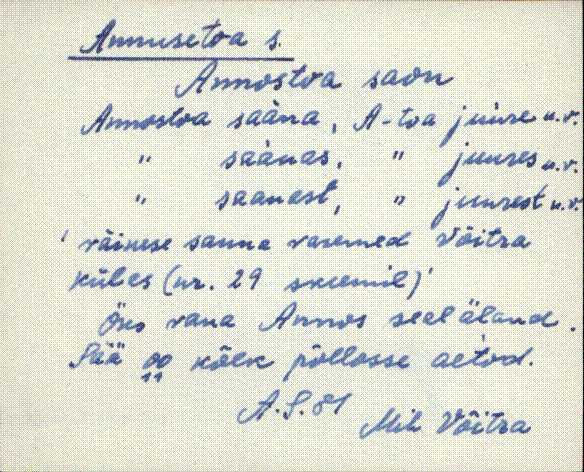 Annusetoa s.
Annostoa saon
Annostoa saàna, A-toa juure u.v.
" saànas, " juures u.v.
" saanast, " juurest u.v.
' väinese sauna varemed Võitra
küles (nr. 29 skeemil)'
Öks vana Annos seal äland.
Sää oo kõik põllosse aetod.
A.S. 81
Mih Võitra